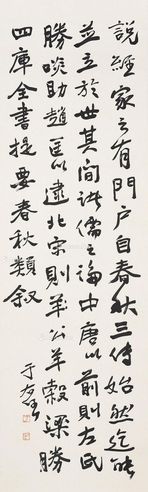 說經家之有門戶自春秋三傳始然迄能
並立於世其間諸儒之論中唐以前則左氏
勝啖助趙匡以逮北宋則羊公羊穀梁勝
四庫全書提要春秋類叙
于右任